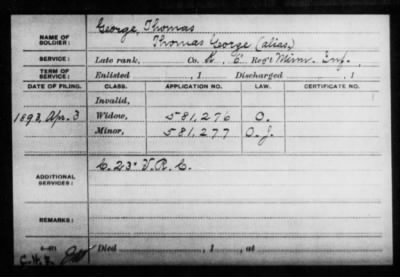 George, Thomas
NAME OF SOLDIER: Thomas George (alias)
SERVICE: Late rank, Co. K, 6 Reg't Minn. Inf.,
TERM OF SERVICE: Enlisted , 1 Discharged , 1
DATE OF FILING. CLASS. APPLICATION NO. LAW. CERTIFICATE NO.
Invalid,
1893, Apr. 3 Widow, 581,276 O.
Minor, 581,277 O.J.
C. 23" V.R.C.
ADDITIONAL SERVICES:
REMARKS:
Died , 1 , at